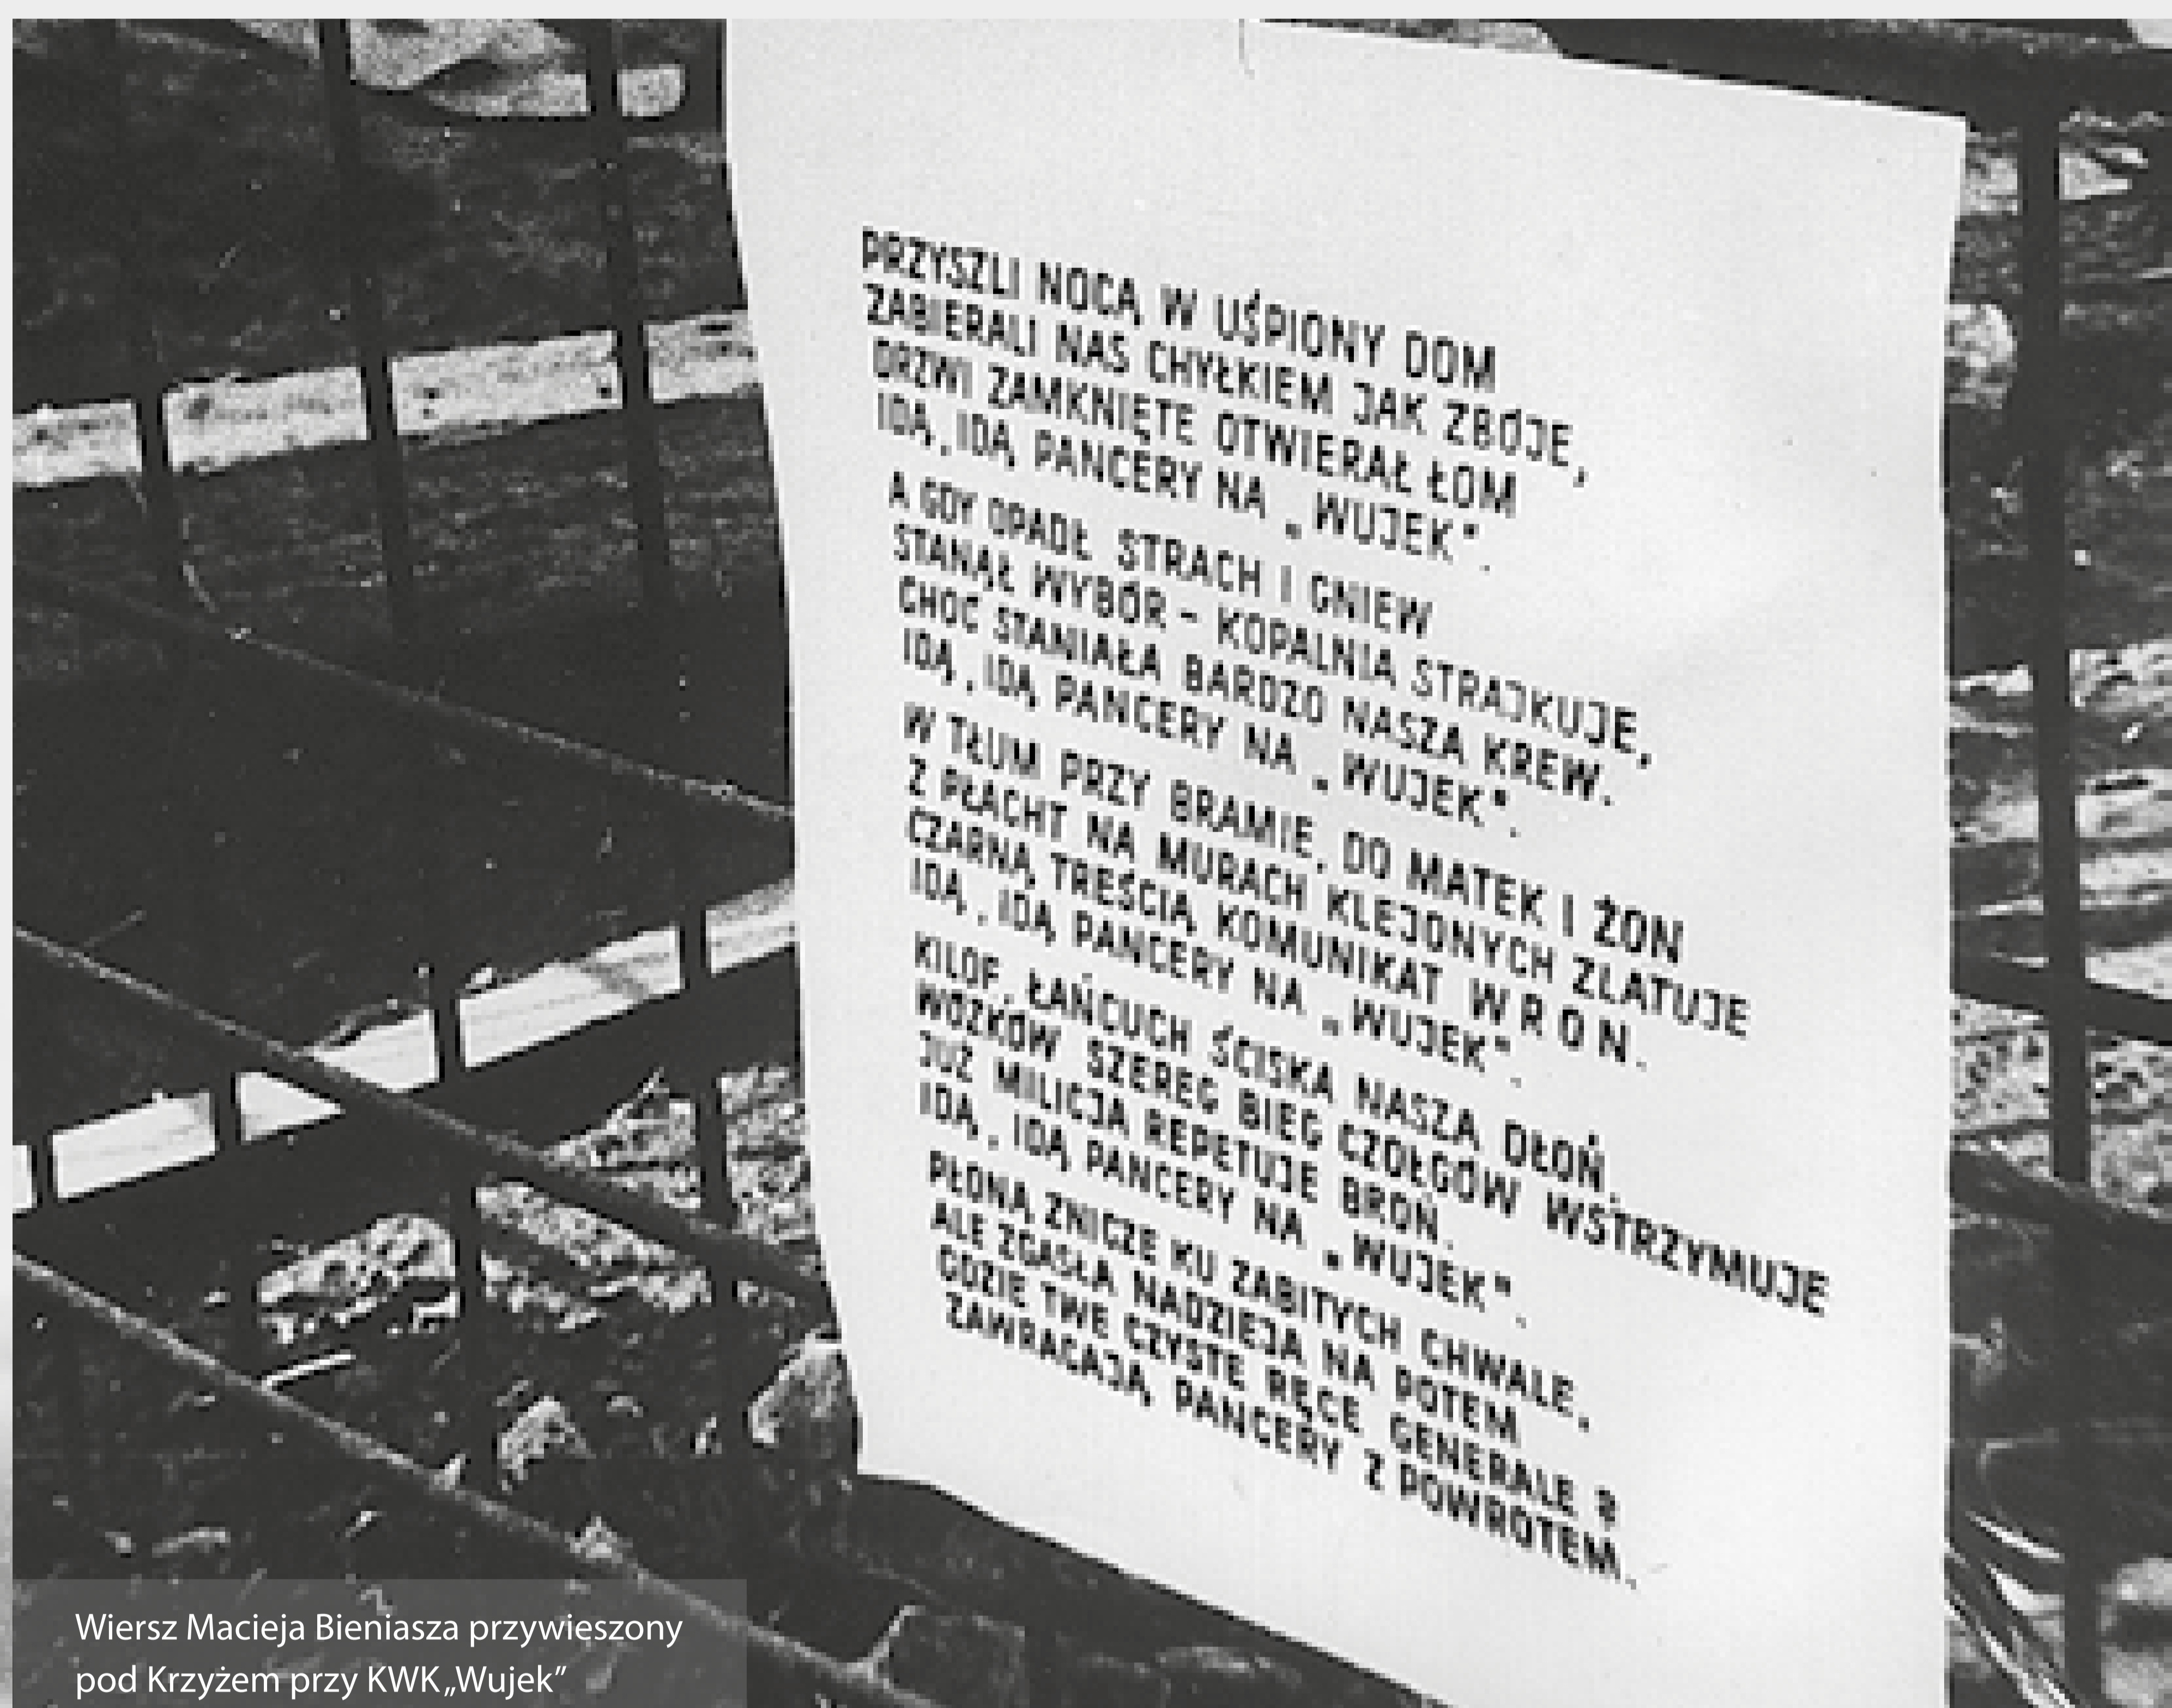 PRZYSZLI NOCĄ W UŚPIONY DOM
ZABIERALI NAS CHYŁKIEM JAK ZBÓJE,
DRZWI ZAMKNIĘTE OTWIERAŁ ŁOM
IDĄ, IDĄ PANCERY NA „WUJEK".
A GDY OPADŁ STRACH I GNIEW
STANĄŁ WYBÓR – KOPALNIA STRAJKUJE,
CHOĆ STANIAŁA BARDZO NASZA KREW.
IDĄ, IDĄ PANCERY NA „WUJEK".
W TŁUM PRZY BRAMIE, DO MATEK I ŻON
Z PŁACHT NA MURACH KLEJONYCH ZLATUJE
CZARNĄ TREŚCIĄ KOMUNIKAT W R O N.
IDĄ, IDĄ PANCERY NA „WUJEK".
KILOF, ŁAŃCUCH ŚCISKA NASZA DŁOŃ.
WÓZKÓW SZEREG BIEG CZOŁGÓW WSTRZYMUJE
JUŻ MILICJA REPETUJE BROŃ.
IDĄ, IDĄ PANCERY NA „WUJEK".
PŁONĄ ZNICZE KU ZABITYCH CHWALE,
ALE ZGASŁA NADZIEJA NA POTEM
GDZIE TWE CZYSTE RĘCE GENERALE ?
ZAWRACAJĄ PANCERY Z POWROTEM.
Wiersz Macieja Bieniasza przywieszony
pod Krzyżem przy KWK „Wujek”